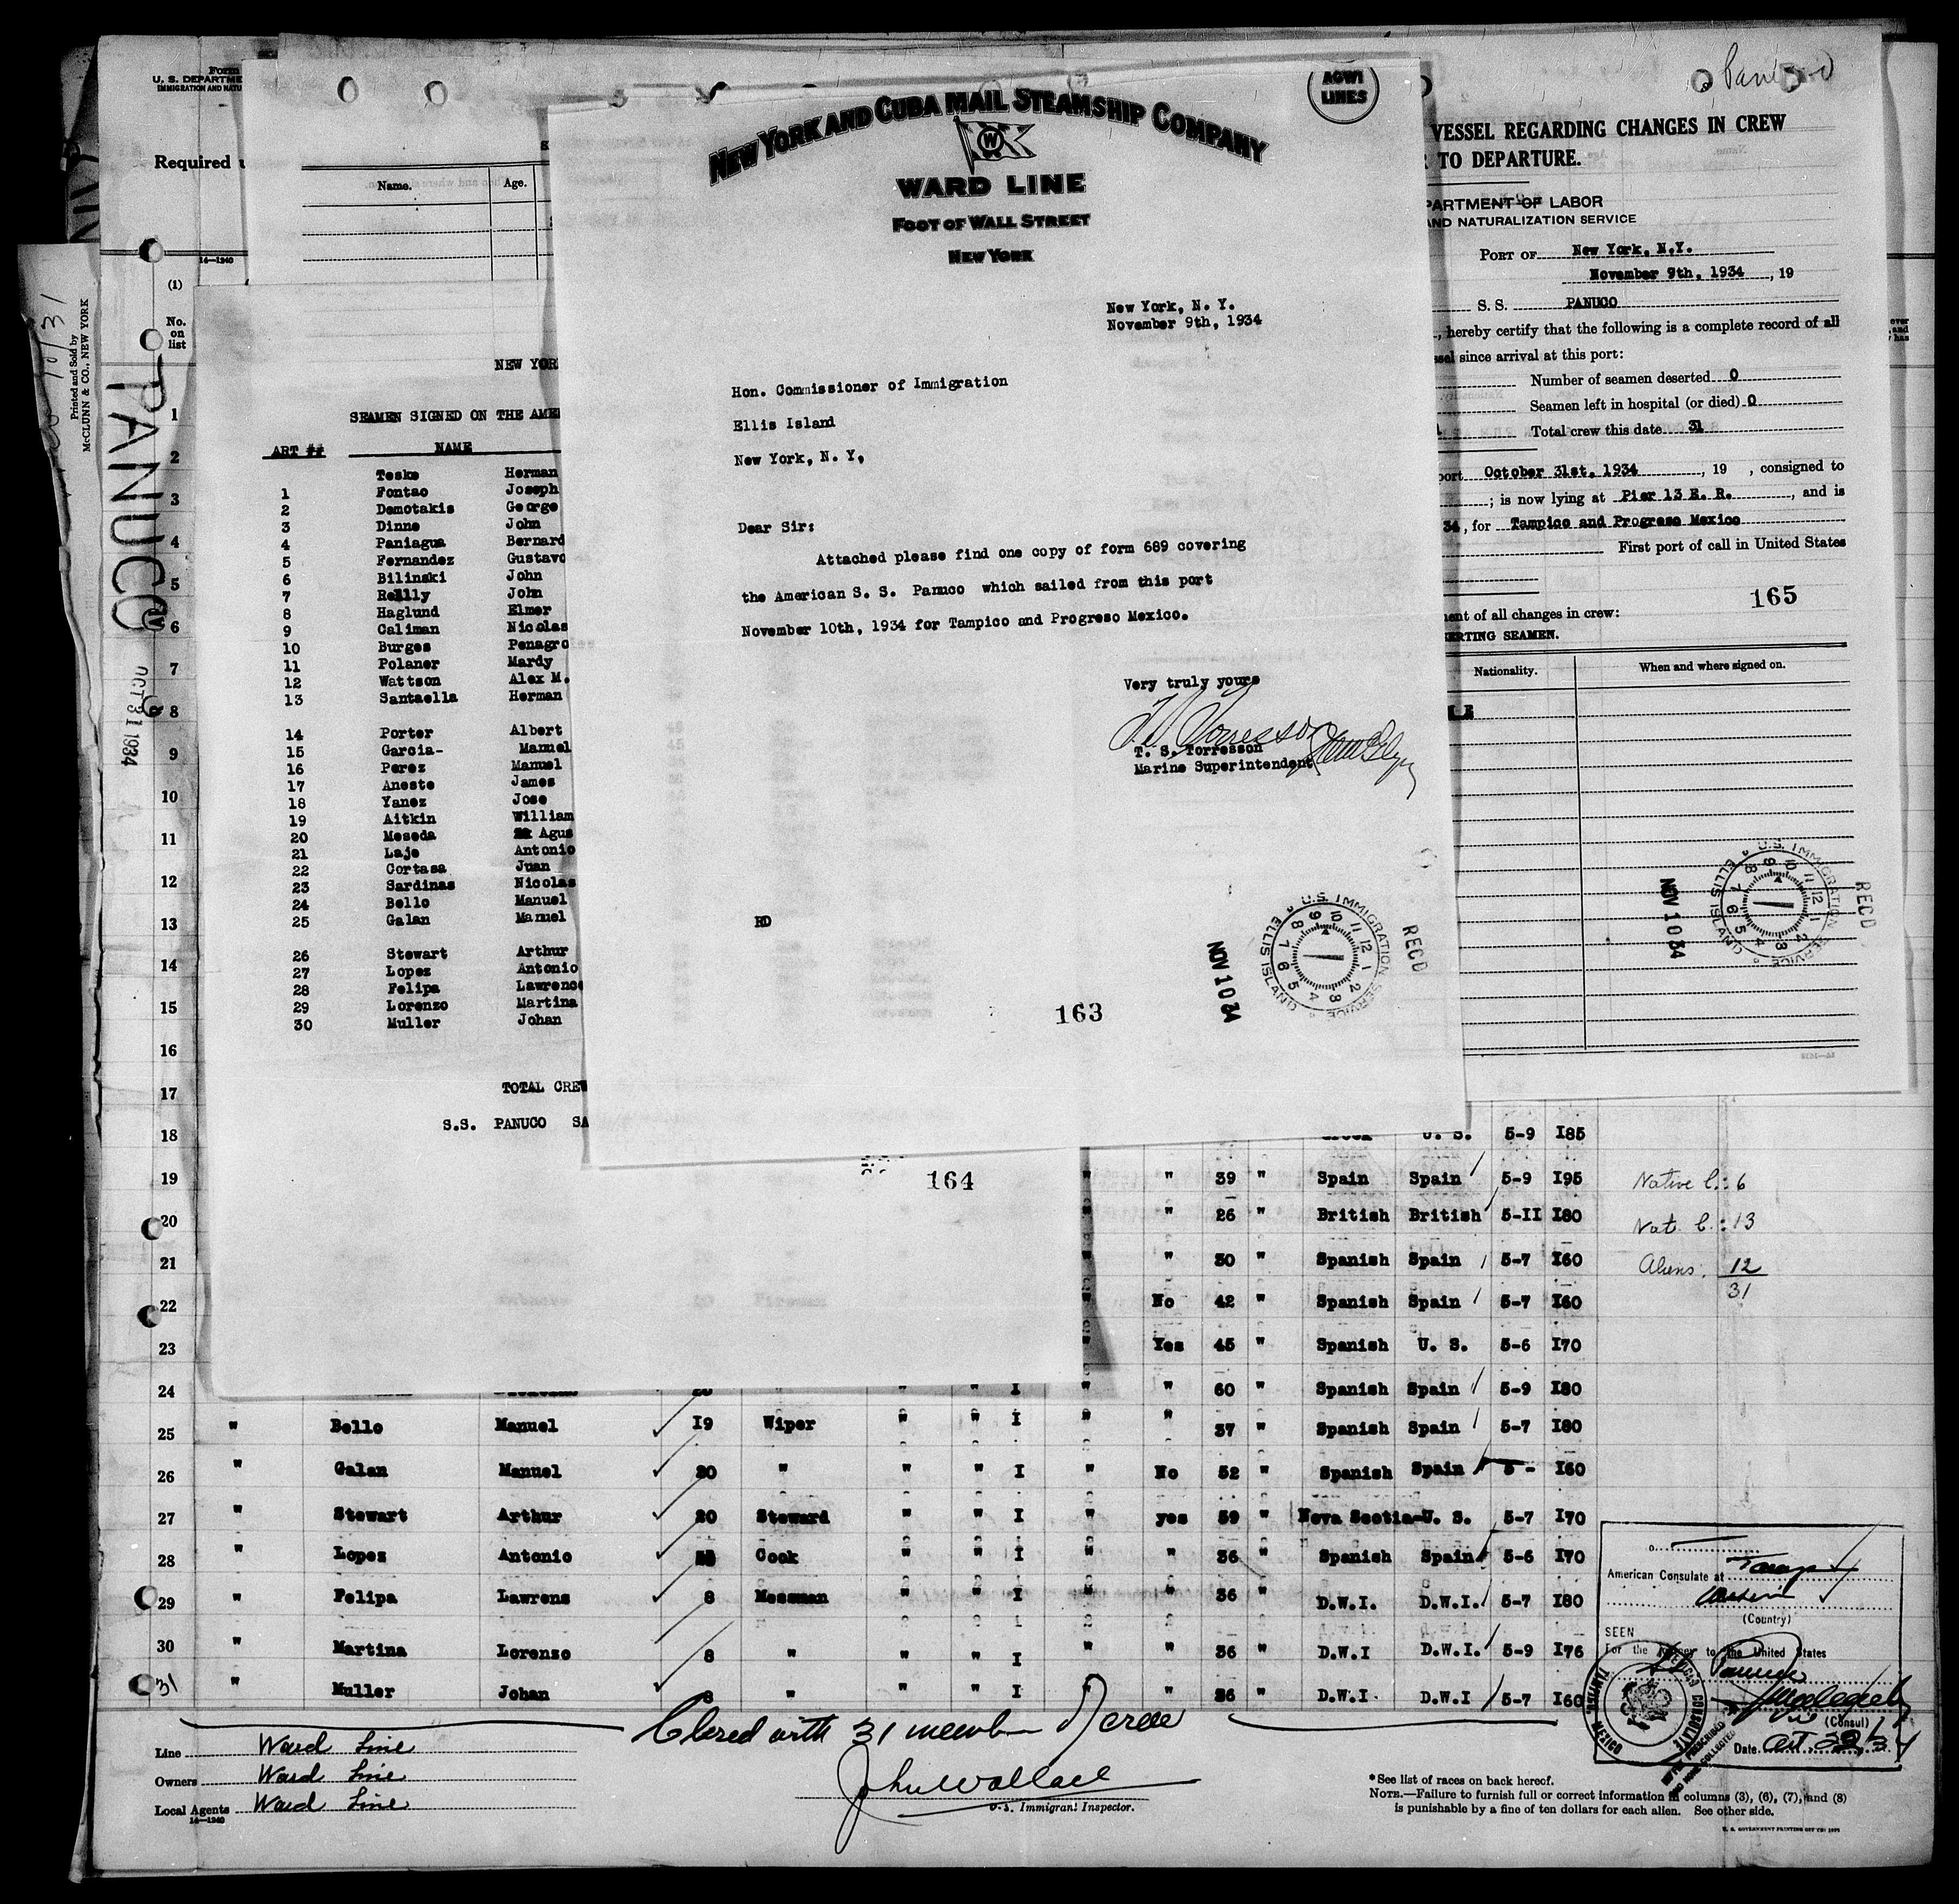 AGWI
LINES
NEW YORK AND CUBA MAIL STEAMSHIP COMPANY
W
WARD LINE
FOOT OF WALL STREET
NEW YORK
New York, N. Y.
November 9th, 1934
Hon. Commissioner of Immigration
Ellis Island
New York, N. Y,
Dear Sir:
Attached please find one copy of form 689 covering
the American S. S. Panuco which sailed from this port
November 10th, 1934 for Tampico and Progreso Mexico.
Very truly yours
T. S. Torresson
Marine Superintendent
RD
163
U.S. IMMIGRATION SERVICE ELLIS ISLAND
RECD
NOV 10 34
Form
U. S. DEPARTME
IMMIGRATION AND NATU
Required
14—1240
(1)
No.
on
list
Printed and Sold by
McCLUNN & CO., NEW YORK
PANUCO
OCT 31 1934
Name.
Age.
NEW YOR
SEAMEN SIGNED ON THE AME
ART ## NAME
Teske Herman
1 Fontao Joseph
2 Demotakis George
3 Dinne John
4 Paniagua Bernard
5 Fernandez Gustavo
6 Bilinski John
7 Reilly John
8 Haglund Elmer
9 Caliman Nicolas
10 Burges Penagro
11 Polaner Mardy
12 Wattson Alex M.
13 Santaella Herman
14 Porter Albert
15 Garcia- Manuel
16 Perez Manuel
17 Aneste James
18 Yanez Jose
19 Aitkin William
20 Meseda Agus
21 Laje Antonio
22 Cortasa Juan
23 Sardinas Nicolas
24 Bello Manuel
25 Galan Manuel
26 Stewart Arthur
27 Lopez Antonio
28 Felipa Lawrence
29 Lorenzo Martina
30 Muller Johan
TOTAL CREW
S.S. PANUCO SA
164
VESSEL REGARDING CHANGES IN CREW
TO DEPARTURE.
PARTMENT OF LABOR
AND NATURALIZATION SERVICE
PORT OF New York, N.Y.
November 9th, 1934, 19
S. S. PANUCO
, hereby certify that the following is a complete record of all
ssel since arrival at this port:
Number of seamen deserted 0
Seamen left in hospital (or died) 0
Total crew this date 31
port October 31st, 1934, 19 , consigned to
; is now lying at Pier 13 E. R. , and is
34, for Tampico and Progreso Mexico
First port of call in United States
165
ment of all changes in crew:
ERTING SEAMEN.
Nationality. When and where signed on.
U.S. IMMIGRATION SERVICE ELLIS ISLAND
RECD
NOV 10 34
1
2
3
4
5
6
7
8
9
10
11
12
13
14
15
16
17
18 U. S. 5-9 I85
19 " " 39 " Spain Spain 5-9 I95
20 " 26 " British British 5-II I80
21 " " 30 " Spanish Spain 5-7 I60
22 " No 42 " Spanish Spain 5-7 I60
23 " Yes 45 " Spanish U. S. 5-6 I70
24 " " I " " 60 " Spanish Spain 5-9 I80
25 " Bello Manuel I9 Wiper " " I " " 37 " Spanish Spain 5-7 I80
26 " Galan Manuel 20 " " " I " No 52 " Spanish Spain 5- I60
27 " Stewart Arthur 20 Steward " " I " yes 59 " Nova Scotia-U. S. 5-7 I70
28 " Lopez Antonio Cook " " I " " 36 " Spanish Spain 5-6 I70
29 " Felipa Lawrens 8 Messman " " I " " 36 " D.W.I. D.W.I. 5-7 I80
30 " Martina Lorenzo 8 " " " I " " 36 " D.W.I D.W.I. 5-9 I76
31 " Muller Johan 8 " " " I " " 36 " D.W.I. D.W.I 5-7 I60
Native C.: 6
Nat. C.: 13
Aliens: 12
31
American Consulate at
(Country)
SEEN
For the to the United States
AMERICAN CONSULATE
TAMPICO, MEXICO
(Consul)
Date Oct. 22/34
Closed with 31 members of crew
John Wallace
U.S. Immigrant Inspector.
Line Ward Line
Owners Ward Line
Local Agents Ward Line
14—1240
*See list of races on back hereof.
NOTE.—Failure to furnish full or correct information in columns (3), (6), (7), and (8)
is punishable by a fine of ten dollars for each alien. See other side.